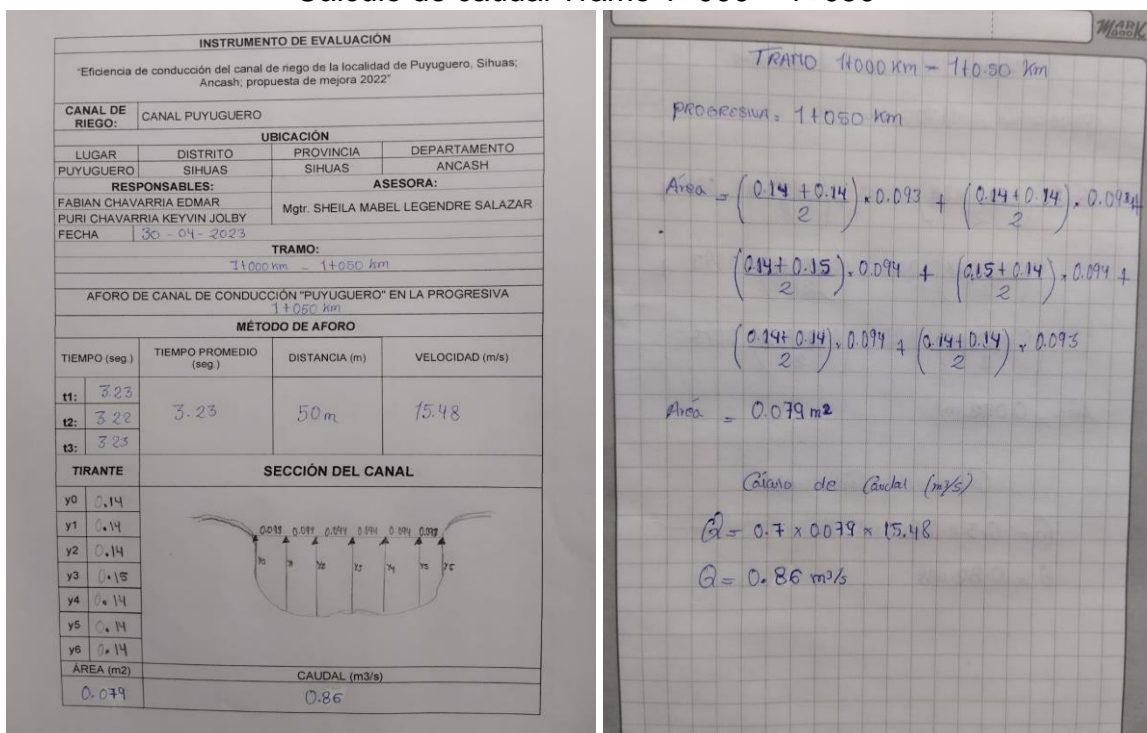 INSTRUMENTO DE EVALUACIÓN
"Eficiencia de conducción del canal de riego de la localidad de Puyuguero, Sihuas;
Ancash; propuesta de mejora 2022"
CANAL DE RIEGO: CANAL PUYUGUERO
UBICACIÓN
LUGAR DISTRITO PROVINCIA DEPARTAMENTO
PUYUGUERO SIHUAS SIHUAS ANCASH
RESPONSABLES: ASESORA:
FABIAN CHAVARRIA EDMAR
PURI CHAVARRIA KEYVIN JOLBY
Mgtr. SHEILA MABEL LEGENDRE SALAZAR
FECHA 30 - 04 - 2023
TRAMO:
1+000 km - 1+050 km
AFORO DE CANAL DE CONDUCCIÓN "PUYUGUERO" EN LA PROGRESIVA
1+050 km
MÉTODO DE AFORO
TIEMPO (seg.) TIEMPO PROMEDIO (seg.) DISTANCIA (m) VELOCIDAD (m/s)
t1: 3.23
t2: 3.22 3.23 50 m 15.48
t3: 3.23
TIRANTE SECCIÓN DEL CANAL
y0 0.14
y1 0.14
y2 0.14
y3 0.15
y4 0.14
y5 0.14
y6 0.14
0.094 0.094 0.094 0.094
y0 y1 y2 y3 y4 y5
ÁREA (m2) CAUDAL (m3/s)
0.079 0.86
TRAMO 1+000 Km - 1+0.50 Km
PROGRESIVA = 1+050 Km
Área = (0.14 + 0.14 / 2) x 0.093 + (0.14 + 0.14 / 2) x
(0.14 + 0.15 / 2) x 0.094 + (0.15 + 0.14 / 2) x 0.094 +
(0.14 + 0.14 / 2) x 0.094 + (0.14 + 0.14 / 2) x 0.093
Área = 0.079 m2
de Caudal (m3/s)
Q = 0.7 x 0.079 x 15.48
Q = 0.86 m3/s